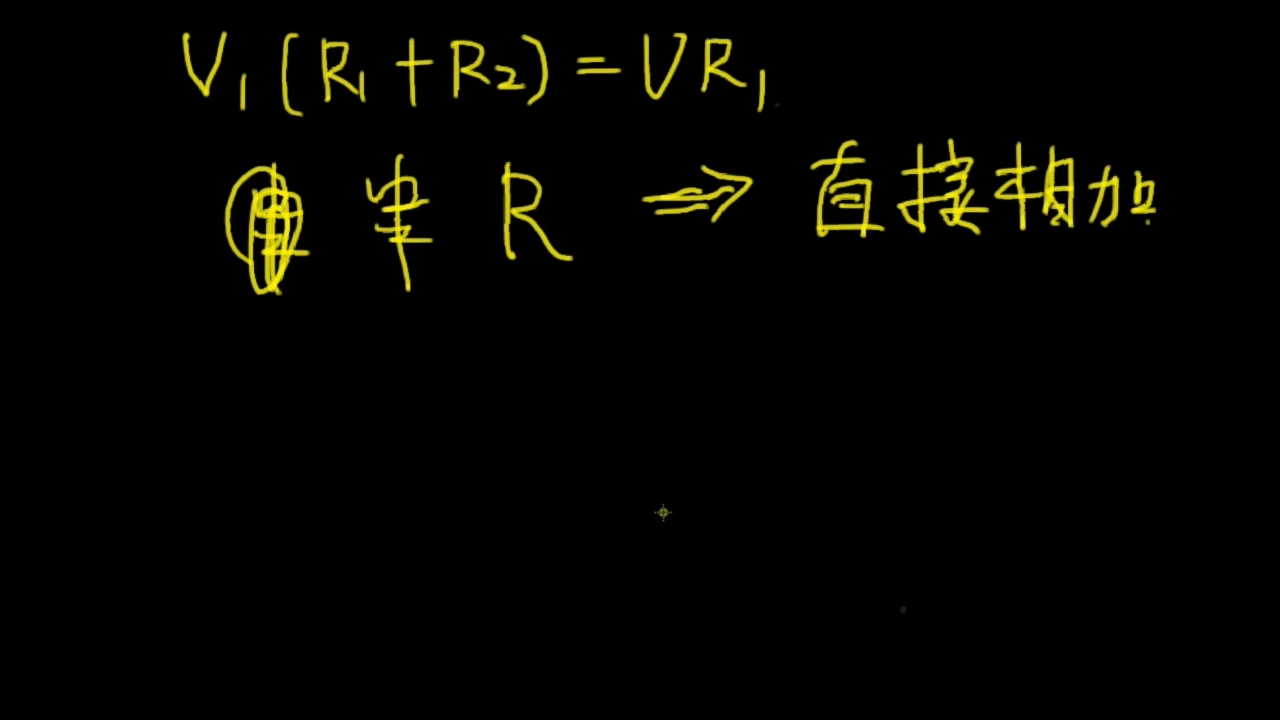 V₁(R₁+R₂)=VR₁
串 R ⇒ 直接相加